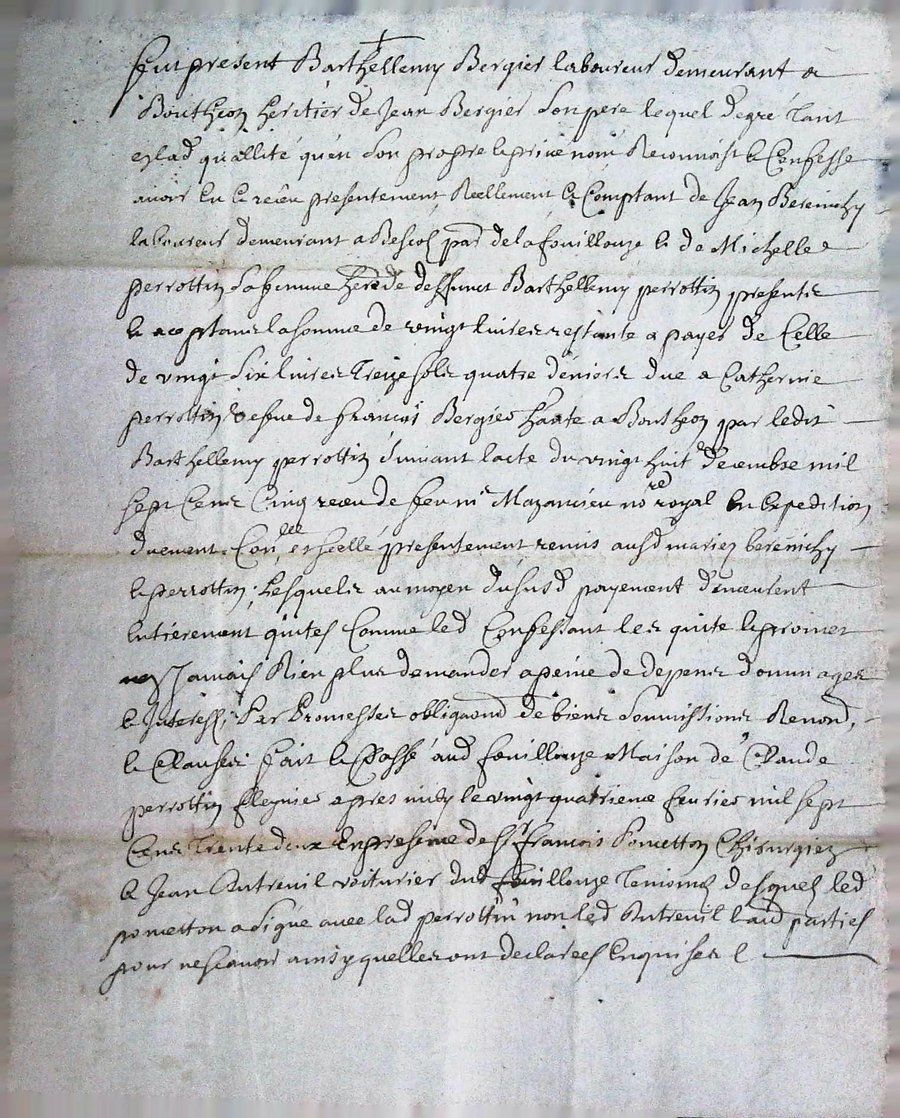 feut present Barthellemy Bergier laboureur demeurant a
Boutheon heritier de Jean Bergier son pere lequel degre tant
eslad quallité quen son propre & privé nom Reconnoist & Confesse
avoir Eu & receu presentement, Reellement & Comptant de Jean Berenichy
laboureur demeurant a parr de la fouillouze & de Michelle
perrottin sa femme herede deffunct Barthellemy perrottin presents
& aceptans la somme de vingt livres restante a payer de Celle
de vingt six livres treize sols quatre deniers due a Catherine
perrottin vefve de francois Bergier hante a Boutheon par ledit
Barthellemy perrottin suivant lacte du vingt huit decembre mil
sept Cens Cinq receu de feu mr Mazancieu nore royal En Expedition
duement Conllee, et scellé presentement remis ausd mariez berenichy
& perrottin; Lesquels au moyen du susd payement demeurent
Entierement quites Comme led Confessant les quite & promet
ne Jamais Rien plus demander a peine de depens dommages
& Interest; Par Promesses obligaons de biens soumissions Renond,
& Clauses fait & Passé aud fouillouze Maison de Claude
perrottin apres midy le vingt quatrieme fevrier mil sept
Cens trente deux En presence de Sr francois Pometton Chirurgien
& Jean Autreuil voiturier dud fouillouze temoins desquels led
pometton a signé avec lad perrottin non led Autreuil & aud parties
pour ne scavoir ainsy quelles ont declarees Enquises &